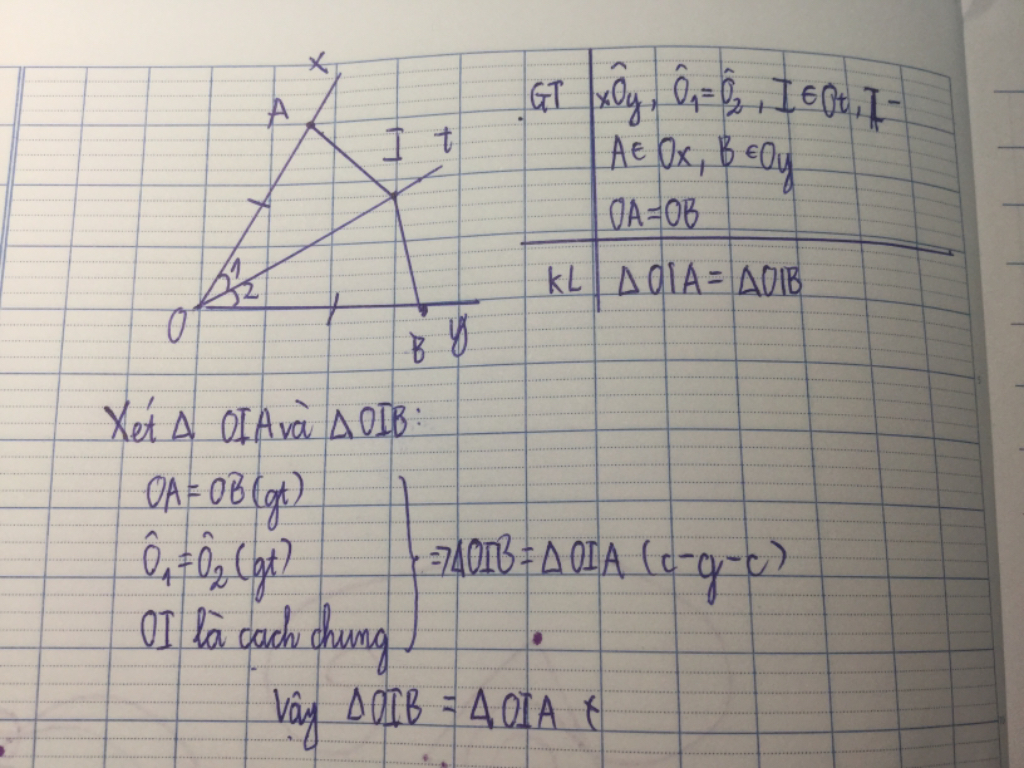 x
A
I t
1
2
O
B y
GT xÔy, Ô₁=Ô₂, I ∈ Ot, I
A ∈ Ox, B ∈ Oy
OA=OB
KL Δ OIA = ΔOIB
Xét Δ OIA và Δ OIB:
OA = OB (gt)
Ô₁ = Ô₂ (gt)
OI là cạch chung
⇒ ΔOIB = ΔOIA (c-g-c)
Vậy ΔOIB = ΔOIA t